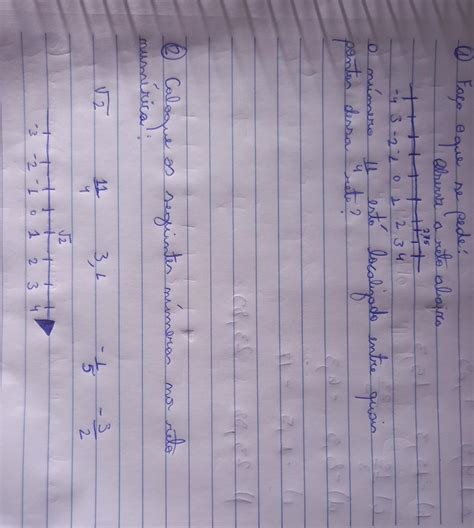 ① Faça o que se pede:
Observe a reta abaixo
2,75
-4 3 -2 -1 0 1 2 3 4
o número 11/4 está localizado entre quais
pontos dessa reta?
② Coloque os seguintes números na reta
numérica:
√2 11/4 3,1 -1/5 -3/2
√2
-3 -2 -1 0 1 2 3 4